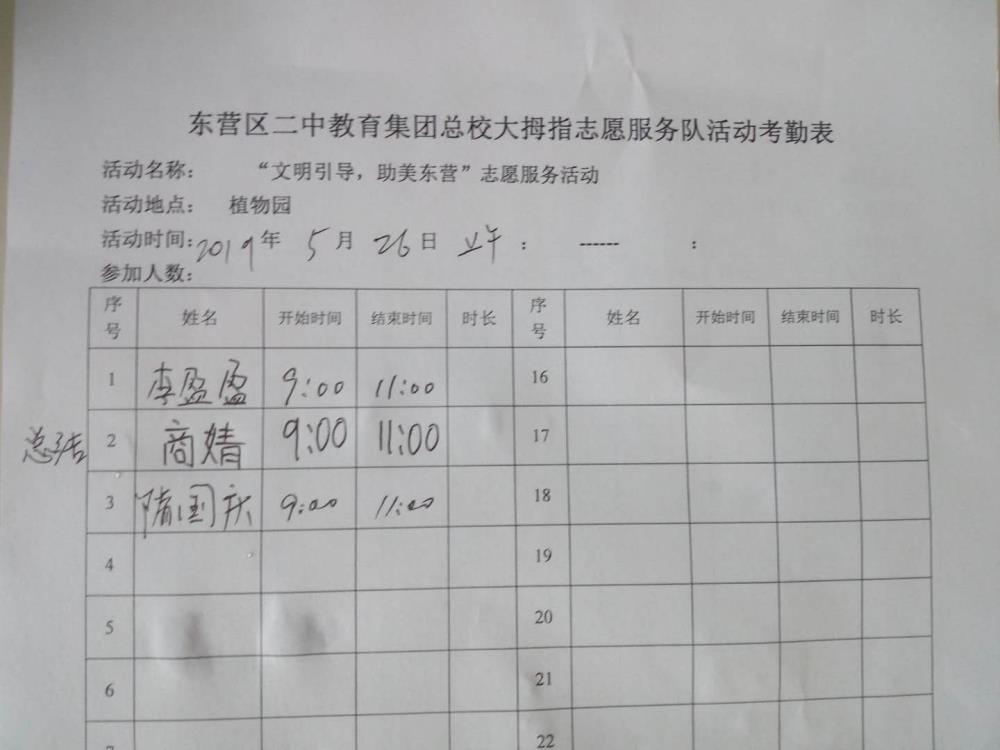 东营区二中教育集团总校大拇指志愿服务队活动考勤表
活动名称： “文明引导，助美东营”志愿服务活动
活动地点： 植物园
活动时间：2019年 5月 26日 上午 ： ------ ：
参加人数：
序号 姓名 开始时间 结束时间 时长 序号 姓名 开始时间 结束时间 时长
1 李盈盈 9:00 11:00 16
2 商婧 9:00 11:00 17
3 隋国庆 9:00 11:00 18
4 19
5 20
6 21
22